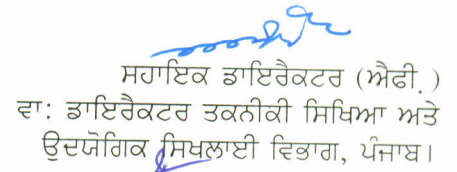 ਸਹਾਇਕ ਡਾਇਰੈਕਟਰ (ਐਫੀ.)
ਵਾ: ਡਾਇਰੈਕਟਰ ਤਕਨੀਕੀ ਸਿਖਿਆ ਅਤੇ
ਉਦਯੋਗਿਕ ਸਿਖਲਾਈ ਵਿਭਾਗ, ਪੰਜਾਬ।